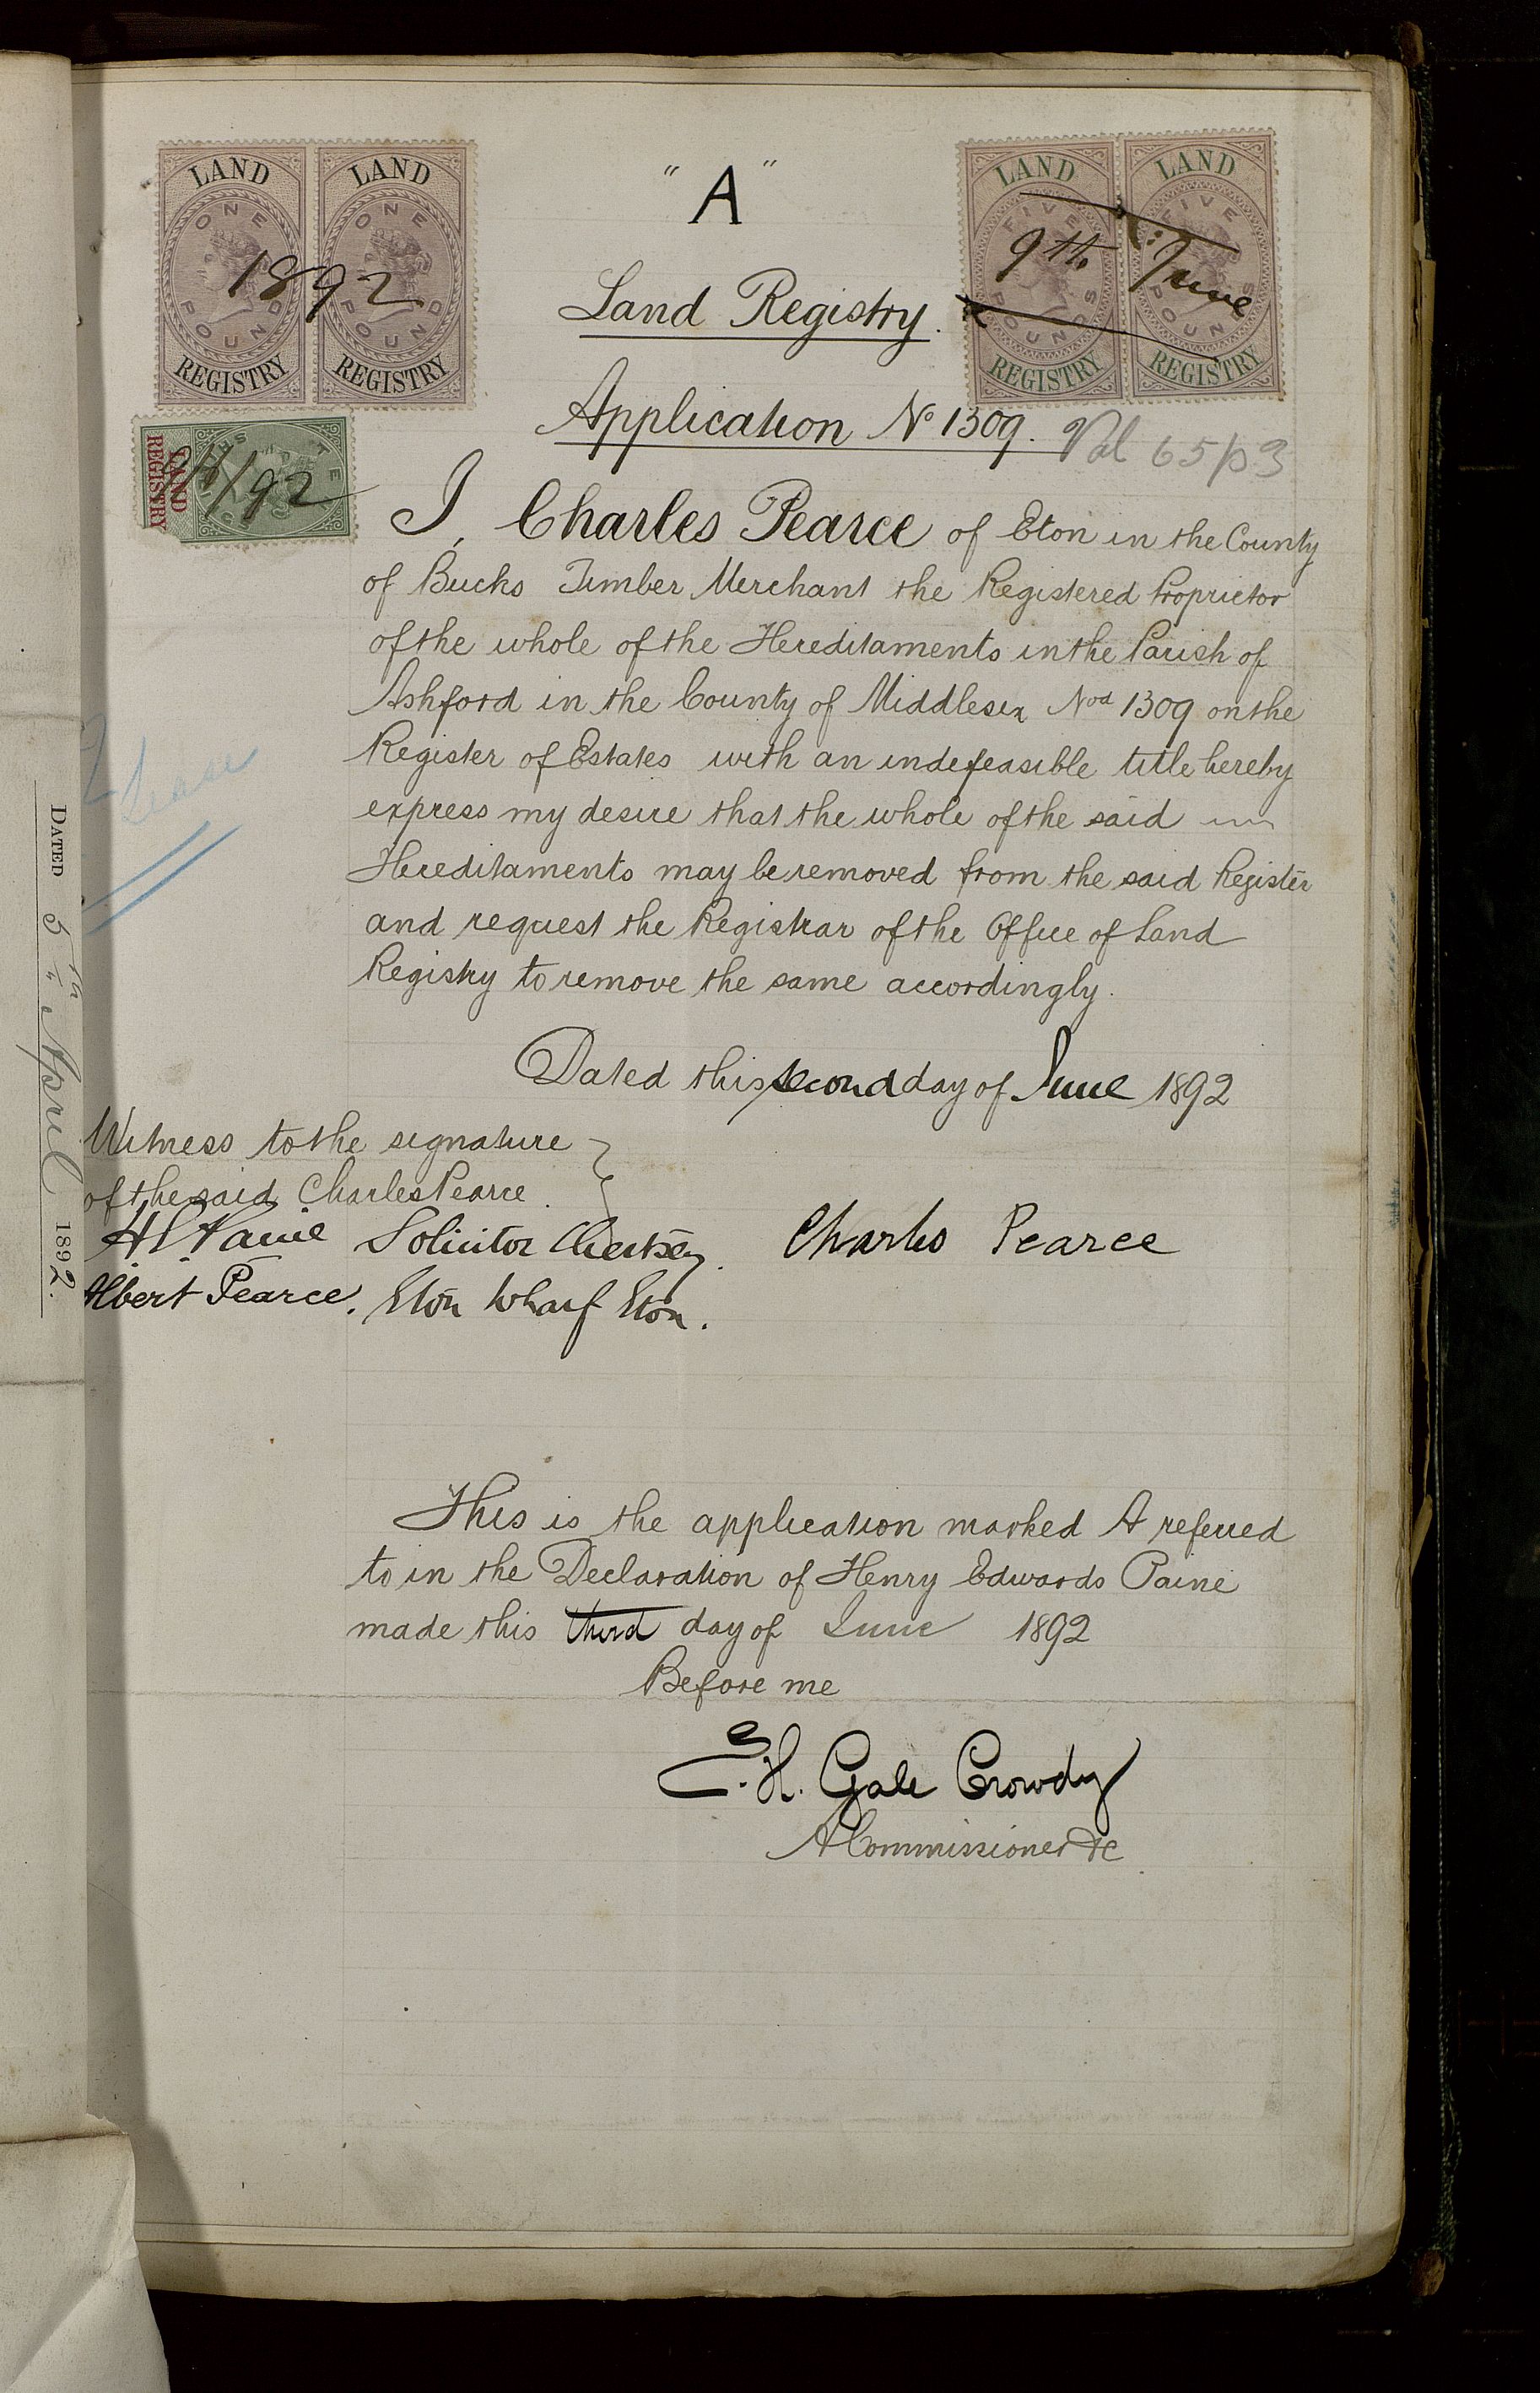 LAND ONE POUND REGISTRY
LAND ONE POUND REGISTRY
1892
"A"
LAND FIVE POUNDS REGISTRY
LAND FIVE POUNDS REGISTRY
9th June
Land Registry.
Application No 1309. Vol 65 p 3
LAND REGISTRY
/92
I, Charles Pearce of Eton in the County
of Bucks Timber Merchant the Registered Proprietor
of the whole of the Hereditaments in the Parish of
Ashford in the County of Middlesex Nod 1309 on the
Register of Estates with an indefeasible title hereby
express my desire that the whole of the said
Hereditaments may be removed from the said Register
and request the Registrar of the Office of Land
Registry to remove the same accordingly.
Dated this second day of June 1892
Witness to the signature
of the said Charles Pearce.
H E Paine Solicitor Chertsey.
Charles Pearce
Albert Pearce. Eton Wharf Eton.
Lease
DATED 5th April 1892.
This is the application marked A referred
to in the Declaration of Henry Edwards Paine
made this third day of June 1892
Before me
E. H. Gale Crowdy
A Commissioner &c